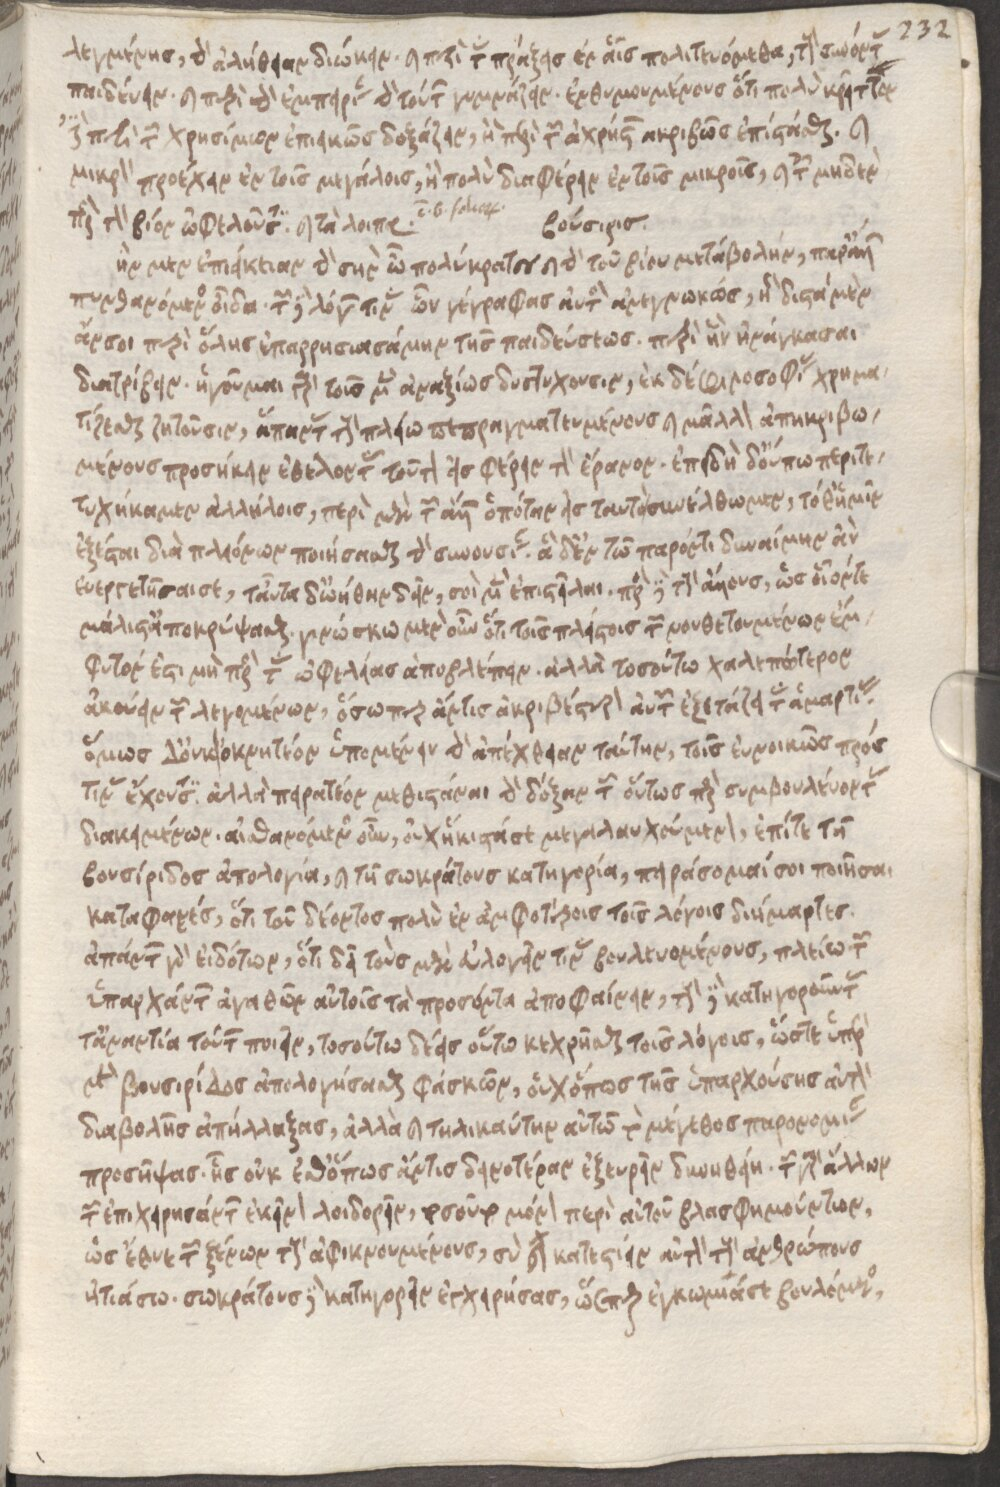 232
λεγμένης, τὴν ἀλήθειαν διώκειν. καὶ περὶ τὰς πράξεις ἐν αἷς πολιτευόμεθα, τοὺς συνόντας
παιδεύειν. καὶ περὶ τὴν ἐμπειρίαν τὴν τούτων γυμνάζειν. ἐνθυμουμένους ὅτι πολὺ κρεῖττον
ἐστὶ περὶ τῶν χρησίμων ἐπιεικῶς δοξάζειν, ἢ περὶ τῶν ἀχρήστων ἀκριβῶς ἐπίστασθαι. καὶ
μικρὸν προέχειν ἐν τοῖς μεγάλοις, ἢ πολὺ διαφέρειν ἐν τοῖς μικροῖς, καὶ τοῖς μηδὲν
πρὸς τὸν βίον ὠφελοῦσιν. καὶ τὰ λοιπά. βούσιρις.
τὴν μὲν ἐπιείκειαν τὴν σὴν ὦ πολύκρατες καὶ τὴν τοῦ βίου μεταβολὴν, παρ' ἄλλων
πυνθανόμενος οἶδα. τῶν δὲ λόγων τινὰς ὧν γέγραφας αὐτὸς ἀνεγνωκὼς, ἥδιστα μὲν
ἄν σοι περὶ ὅλης ἐπαρρησιασάμην τῆς παιδεύσεως. περὶ ἣν ἠνάγκασαι
διατρίβειν. ἡγοῦμαι γὰρ τοῖς μὲν ἀναξίως δυστυχοῦσιν, ἐκ δὲ φιλοσοφίας χρημα-
τίζεσθαι ζητοῦσιν, ἅπαντας τοὺς πλείω πεπραγματευμένους καὶ μᾶλλον ἀπηκριβω-
μένους προσήκειν ἐθελοντὰς τοῦτον εἰσφέρειν τὸν ἔρανον. ἐπειδὴ δ' οὔπω περιτε-
τυχήκαμεν ἀλλήλοις, περὶ μὲν τῶν ἄλλων ὁπόταν εἰς ταυτὸ συνέλθωμεν, τόθ' ἡμῖν
ἐξέσται διὰ πλειόνων ποιήσασθαι τὴν συνουσίαν. ἃ δ' ἐν τῷ παρόντι δυναίμην ἂν
εὐεργετῆσαί σε, ταῦτα δ' ᾠήθην δεῖν, σοὶ μὲν ἐπιστεῖλαι. πρὸς δὲ τοὺς ἄλλους, ὡς οἷόν τε
μάλιστ' ἀποκρύψασθαι. γινώσκω μὲν οὖν ὅτι τοῖς πλείστοις τῶν νουθετουμένων ἔμ-
φυτόν ἐστι μὴ πρὸς τὰς ὠφελείας ἀποβλέπειν. ἀλλὰ τοσούτω χαλεπώτερον
ἀκούειν τῶν λεγομένων, ὅσωπερ ἄν τις ἀκριβέστερον αὐτῶν ἐξετάζῃ τὰς ἁμαρτίας.
ὅμως δ' οὐκ ὀκνητέον ὑπομένειν τὴν ἀπέχθειαν ταύτην, τοῖς εὐνοικῶς πρός
τινας ἔχουσιν. ἀλλὰ πειρατέον μεθιστάναι τὴν δόξαν τῶν οὕτως πρὸς συμβουλεύοντας
διακειμένων. αἰσθανόμενος οὖν, οὐχ ἥκιστά σε μεγαλαυχούμενον, ἐπί τε τῇ
βουσίριδος ἀπολογία, καὶ τῇ σωκράτους κατηγορία, πειράσομαί σοι ποιῆσαι
καταφανές, ὅτι τοῦ δέοντος πολὺ ἐν ἀμφοτέροις τοῖς λόγοις διήμαρτες.
ἁπάντων γὰρ εἰδότων, ὅτι δεῖ τοὺς μὲν εὐλογεῖν τινὰς βουλευομένους, πλείω τῶν
ὑπαρχόντων ἀγαθῶν αὐτοῖς τὰ προσόντα ἀποφαίνειν, τοὺς δὲ κατηγοροῦντας
τἀναντία τούτων ποιεῖν, τοσούτω δέεις οὕτω κεχρῆσθαι τοῖς λόγοις, ὥστε ὑπὲρ
μὲν βουσιρίδος ἀπολογήσασθαι φάσκων, οὐχ ὅπως τῆς ὑπαρχούσης αὐτὸν
διαβολῆς ἀπήλλαξας, ἀλλὰ καὶ τηλικαύτην αὐτῷ τὸ μέγεθος παρανομίαν
προσῆψας. ἧς οὐκ ἔσθ' ὅπως ἄν τις δεινοτέραν ἐξευρεῖν δυνηθείη. τῶν γὰρ ἄλλων
τῶν ἐπιχειρησάντων ἐκεῖνον λοιδορεῖν, τοσοῦτο μόνον περὶ αὐτοῦ βλασφημούντων,
ὡς ἔθυε τῶν ξένων τοὺς ἀφικνουμένους, σὺ καὶ κατεσθίειν αὐτὸν τοὺς ἀνθρώπους
ᾐτιάσω. σωκράτους δὲ κατηγορεῖν ἐπιχειρήσας, ὥσπερ ἐγκωμιάσαι βουλόμενος,